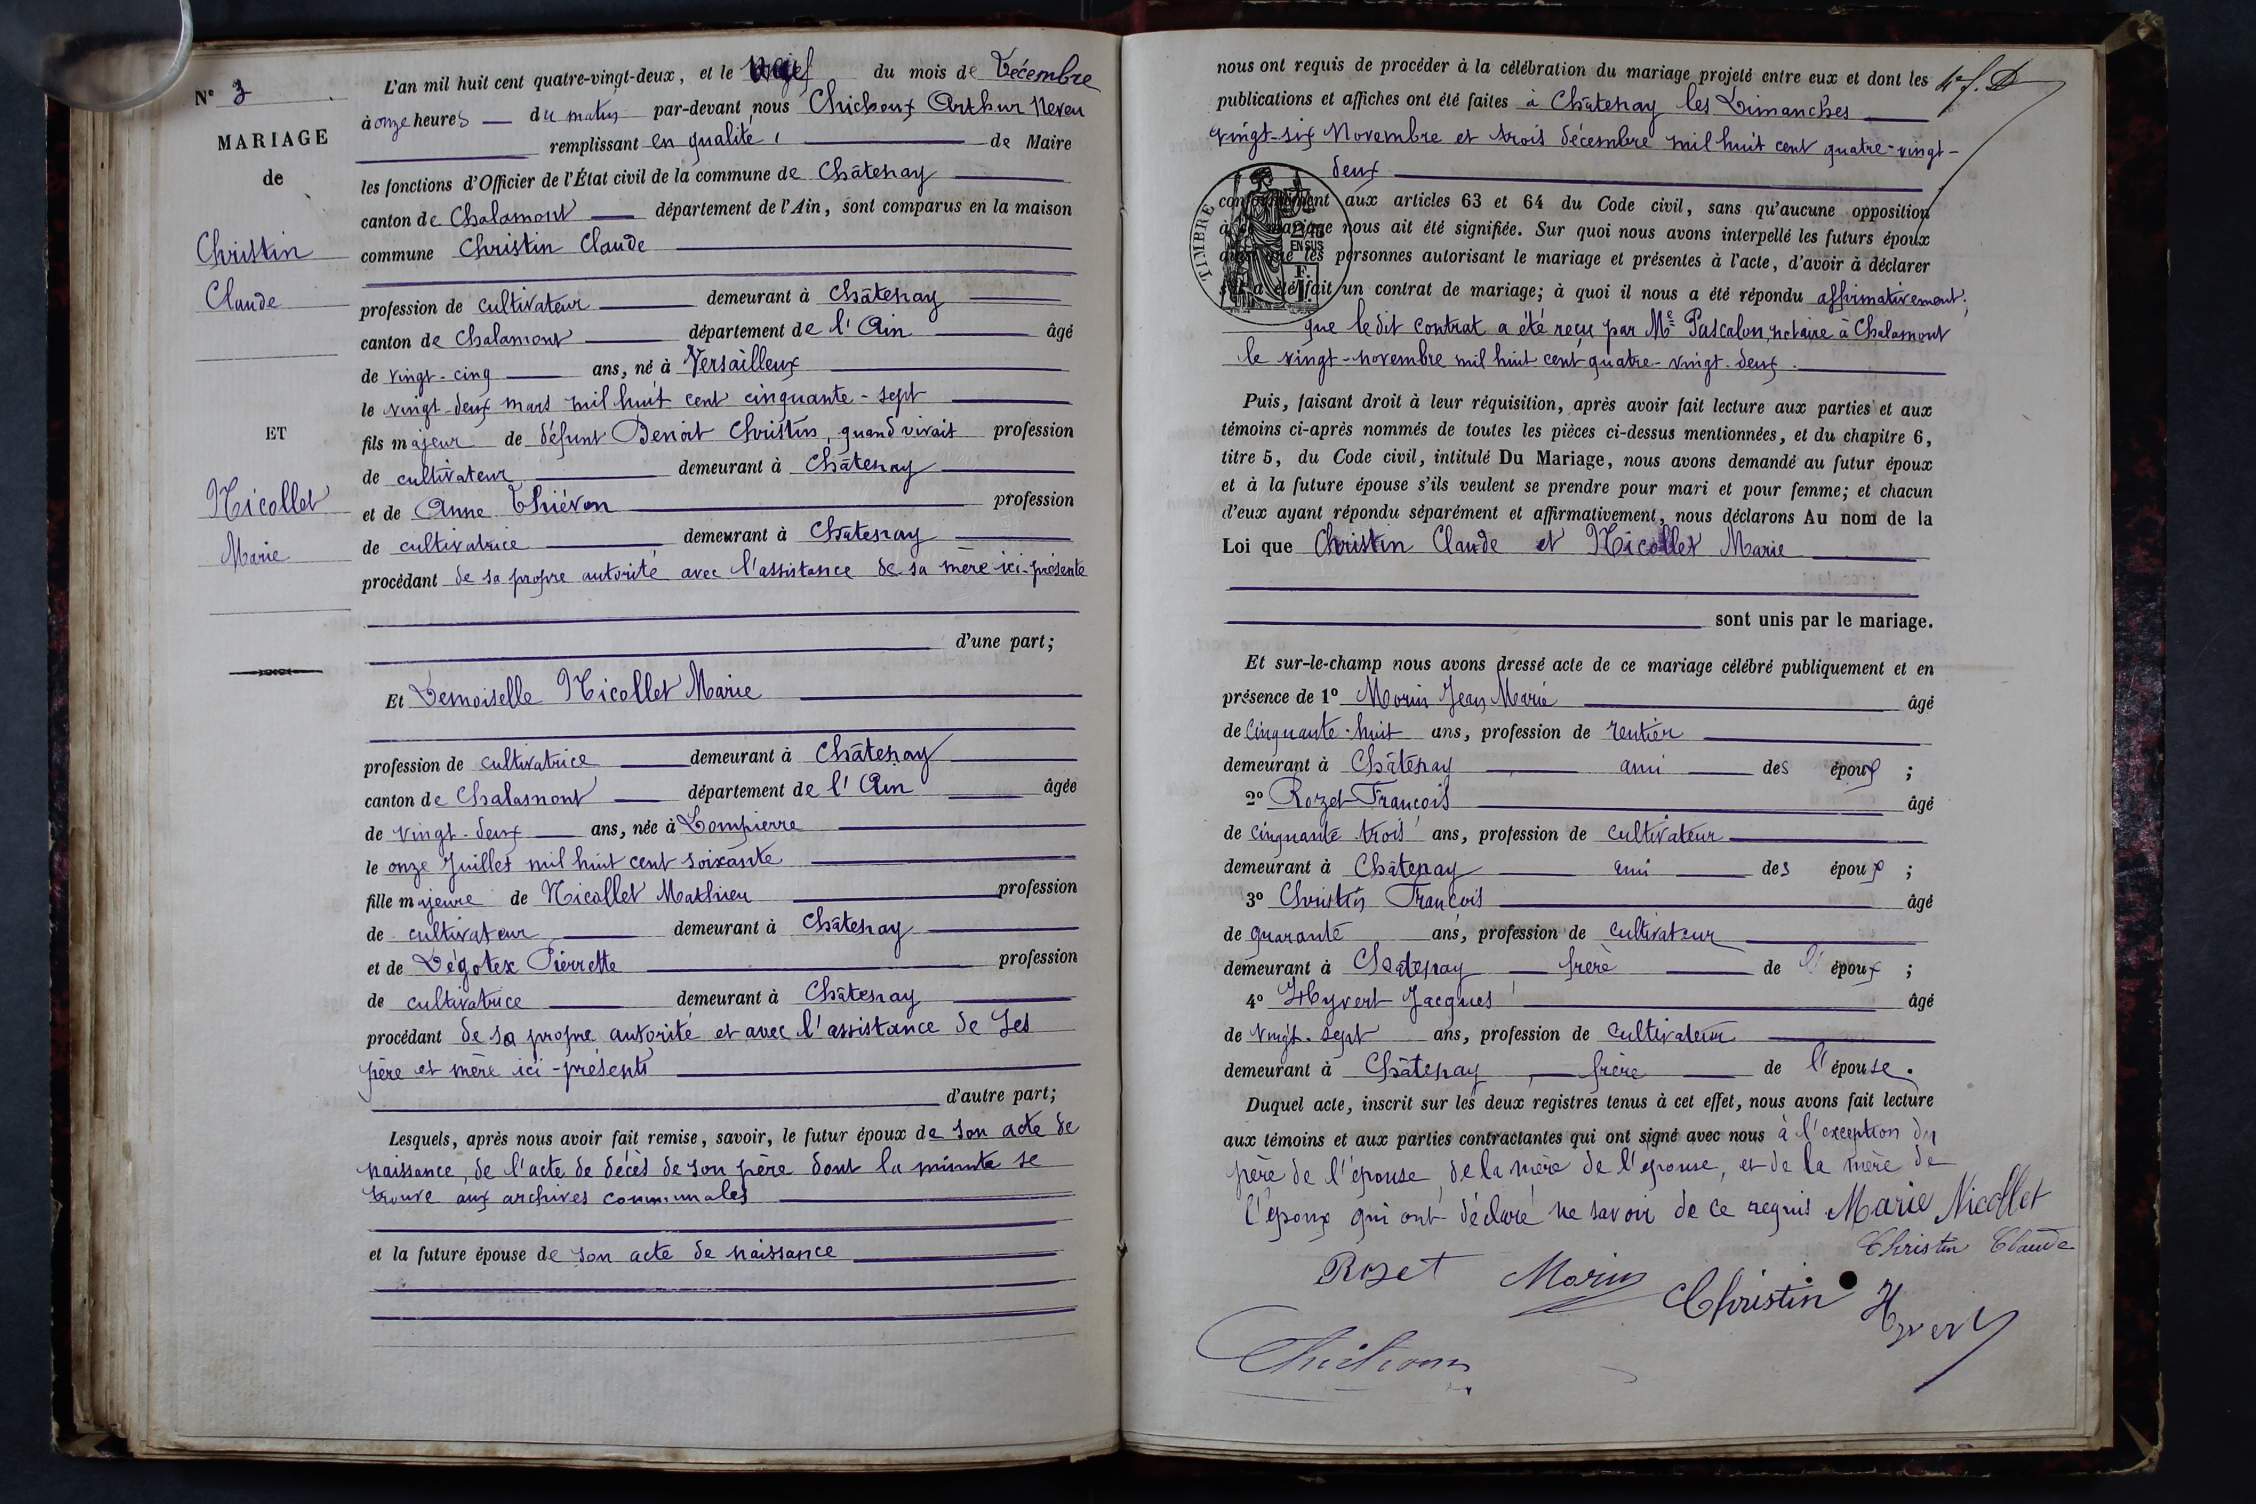 N° 3
MARIAGE
de
Christin
Claude
ET
Nicollet
Marie
L'an mil huit cent quatre-vingt-deux, et le du mois de Décembre
à onze heures du matin par-devant nous Chicheux Arthur Neveu
remplissant en qualité de Maire
les fonctions d'Officier de l'État civil de la commune de Châtenay
canton de Chalamont département de l'Ain, sont comparus en la maison
commune Christin Claude
profession de cultivateur demeurant à Châtenay
canton de Chalamont département de l'Ain âgé
de vingt-cinq ans, né à Versailleux
le vingt-deux mars mil huit cent cinquante-sept
fils majeur de défunt Benoit Christin, quand vivait profession
de cultivateur demeurant à Châtenay
et de Anne Thiévon profession
de cultivatrice demeurant à Châtenay
procédant de sa propre autorité avec l'assistance de sa mère ici-présente
d'une part;
Et Demoiselle Nicollet Marie
profession de cultivatrice demeurant à Châtenay
canton de Chalamont département de l'Ain âgée
de vingt-deux ans, née à Dompierre
le onze Juillet mil huit cent soixante
fille majeure de Nicollet Mathieu profession
de cultivateur demeurant à Châtenay
et de Dégotex Pierrette profession
de cultivatrice demeurant à Châtenay
procédant de sa propre autorité et avec l'assistance de ses
père et mère ici-présents
d'autre part;
Lesquels, après nous avoir fait remise, savoir, le futur époux de son acte de
naissance, de l'acte de décès de son père dont la minute se
trouve aux archives communales
et la future épouse de son acte de naissance
nous ont requis de procéder à la célébration du mariage projeté entre eux et dont les
publications et affiches ont été faites à Châtenay les Dimanches
vingt-six Novembre et trois décembre mil huit cent quatre-vingt-
deux
conformément aux articles 63 et 64 du Code civil, sans qu'aucune opposition
à ce mariage nous ait été signifiée. Sur quoi nous avons interpellé les futurs époux
ainsi que les personnes autorisant le mariage et présentes à l'acte, d'avoir à déclarer
s'il a été fait un contrat de mariage; à quoi il nous a été répondu affirmativement;
que le dit contrat a été reçu par Me Pascalon, notaire à Chalamont
le vingt-novembre mil huit cent quatre-vingt-deux.
TIMBRE
2/10
EN SUS
Puis, faisant droit à leur réquisition, après avoir fait lecture aux parties et aux
témoins ci-après nommés de toutes les pièces ci-dessus mentionnées, et du chapitre 6,
titre 5, du Code civil, intitulé Du Mariage, nous avons demandé au futur époux
et à la future épouse s'ils veulent se prendre pour mari et pour femme; et chacun
d'eux ayant répondu séparément et affirmativement, nous déclarons Au nom de la
Loi que Christin Claude et Nicollet Marie
sont unis par le mariage.
Et sur-le-champ nous avons dressé acte de ce mariage célébré publiquement et en
présence de 1° Morin Jean Marie âgé
de cinquante-huit ans, profession de rentier
demeurant à Châtenay ami des époux;
2° Rozet François âgé
de cinquante trois ans, profession de cultivateur
demeurant à Châtenay ami des époux;
3° Christin François âgé
de quarante ans, profession de cultivateur
demeurant à Châtenay frère de l'époux;
4° Hyvert Jacques âgé
de vingt-sept ans, profession de cultivateur
demeurant à Châtenay, frère de l'épouse.
Duquel acte, inscrit sur les deux registres tenus à cet effet, nous avons fait lecture
aux témoins et aux parties contractantes qui ont signé avec nous à l'exception du
père de l'épouse, de la mère de l'épouse, et de la mère de
l'époux qui ont déclaré ne savoir de ce requis Marie Nicollet
Christin Claude
Rozet Morin Christin Hyvert